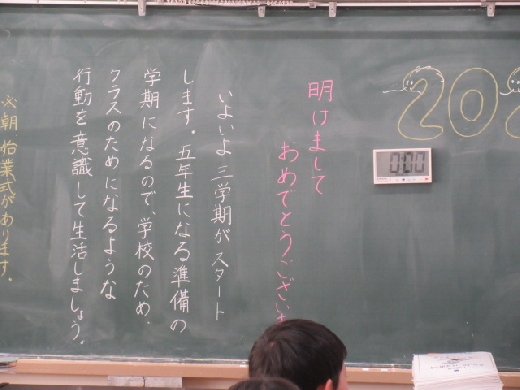 明けまして
おめでとうございま
いよいよ三学期がスタート
します。五年生になる準備の
学期になるので、学校のため、
クラスのためになるような
行動を意識して生活しましょう。
朝 始業式があります。
202
0:00